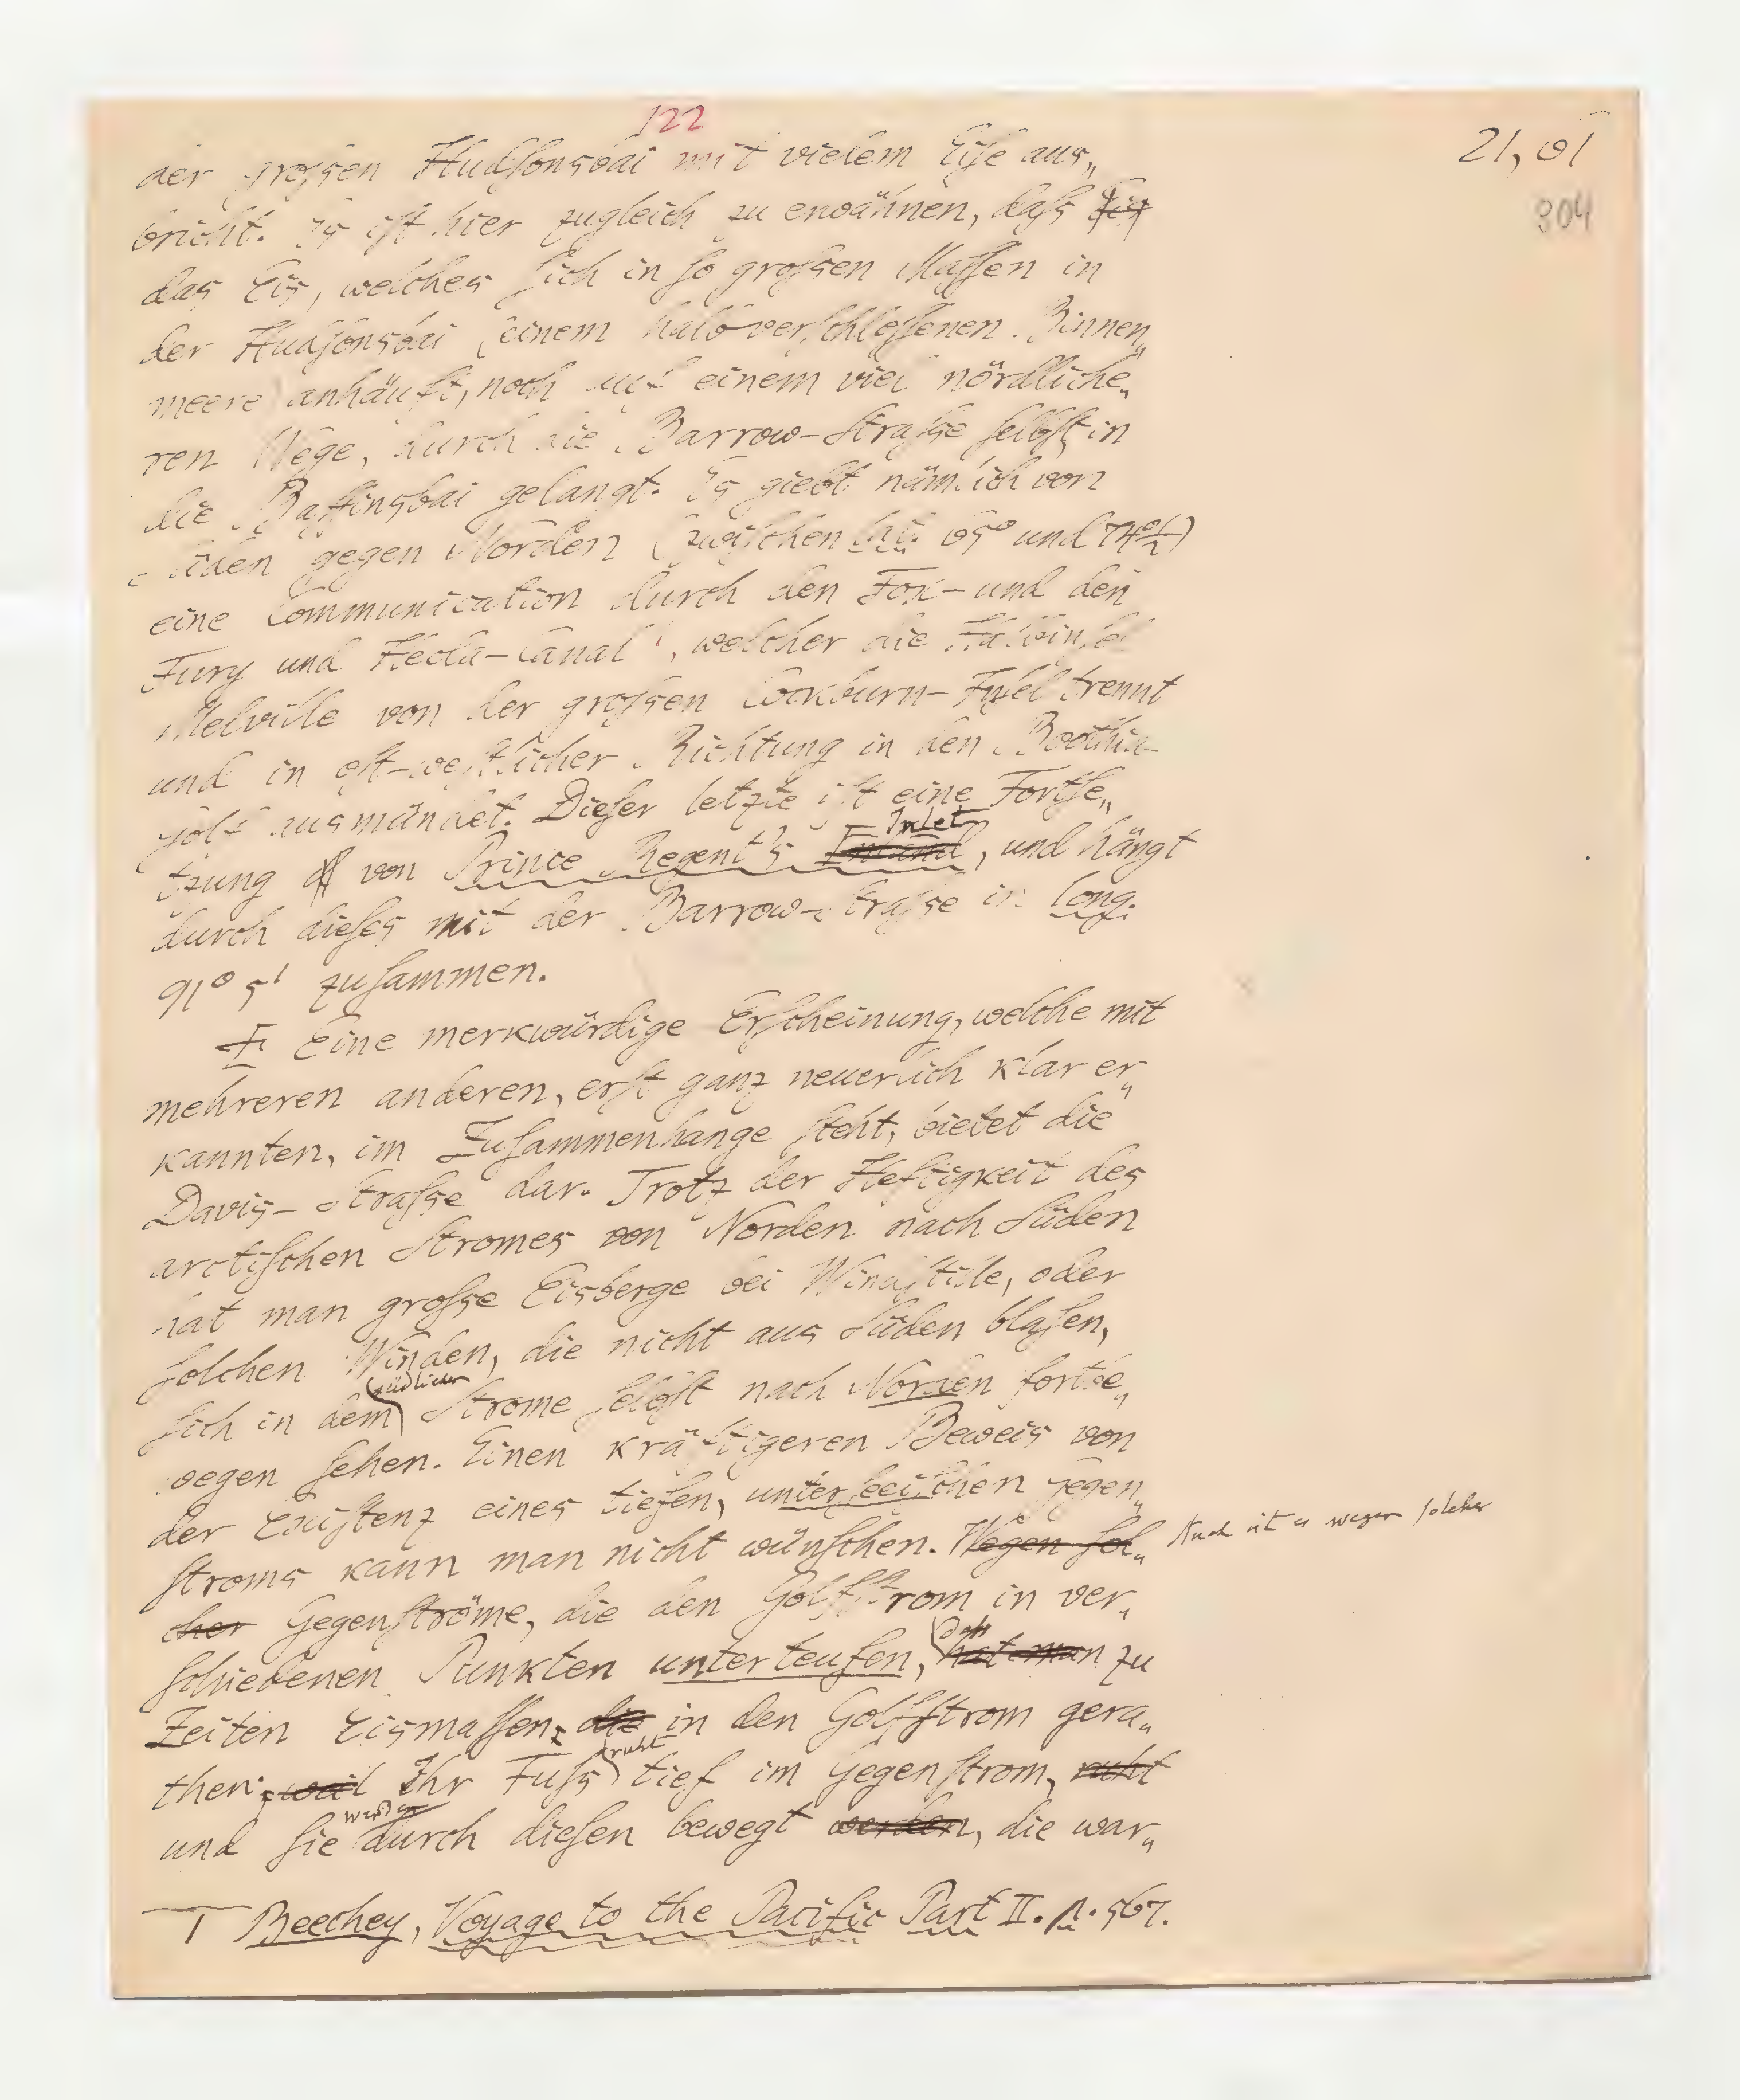 122
21, 61
304
der grossen Hudſonsbai mit vielem Eiſe aus„
bricht. Es iſt hier zugleich zu erwähnen, daſs
das Eis, welches ſich in ſo groſsen Maſſen in
der Hudſonsbai (einem halbverſchloſſenen Binnen„
meere) anhäuft, noch auf einem viel nördliche„
ren Wege, durch die Barrow-Straſse ſelbſt in
die Baffinsbai gelangt. Es giebt nämlich von
Süden gegen Norden (zwiſchen lat. 65° und 74°½)
eine Communication durch den Fox- und den
Fury und Hecla-Canal, welcher die Halbinſel
Melville von der groſsen Cockburn-Inſel trennt
und in oſt-weſtlicher Richtung in den Boothia-
golf ausmündet. Dieſer letzte iſt eine Fortſe„
Inlet
tzung von Prince Regent's , und hängt
durch dieſes mit der Barrow-Straſse in long.
91° 5' zuſammen.
Eine merkwürdige Erſcheinung, welche mit
mehreren anderen, erſt ganz neuerlich klar er„
kannten, im Zuſammenhange ſteht, bietet die
Davis-Straſse dar. Trotz der Heftigkeit des
arctiſchen Stromes von Norden nach Süden
hat man groſse Eisberge bei Windſtille, oder
ſolchen Winden, die nicht aus Süden blaſen,
südlichen
ſich in dem Strome ſelbſt nach Norden fortbe„
wegen ſehen. Einen kräftigeren Beweis von
der Exiſtenz eines tiefen, unterſeeiſchen Gegen„
ſtroms kann man nicht wünſchen. Wegen ſol„ Auch iſt es wegen ſolcher
cher Gegenſtröme, die den Golfſtrom in ver„
daſs
ſchiedenen Punkten unterteufen, hat man zu
Zeiten Eismaſſen, die in den Golfſtrom gera„
ruht
then; weil Ihr Fuſs tief im Gegenſtrom, ruht
werden
und ſie durch dieſen bewegt werden, die war„
Beechey, Voyage to the Pacific Part II. p. 567.